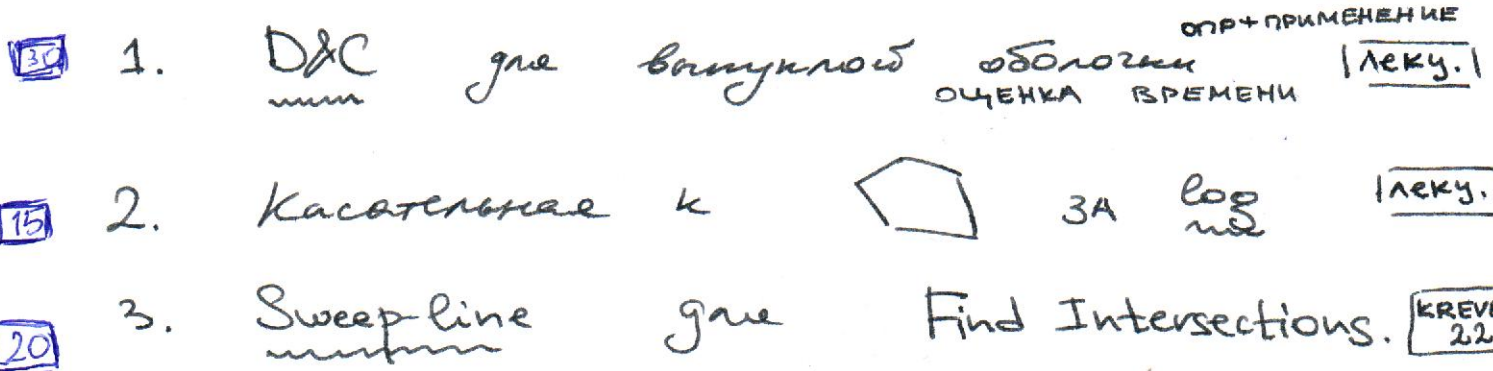 30 1. D&C для выпуклой оболочки ОПР+ПРИМЕНЕНИЕ |Леку.|
ОЦЕНКА ВРЕМЕНИ
15 2. Касательная к ЗА log |Леку.
20 3. Sweep-line для Find Intersections. KREVE 22